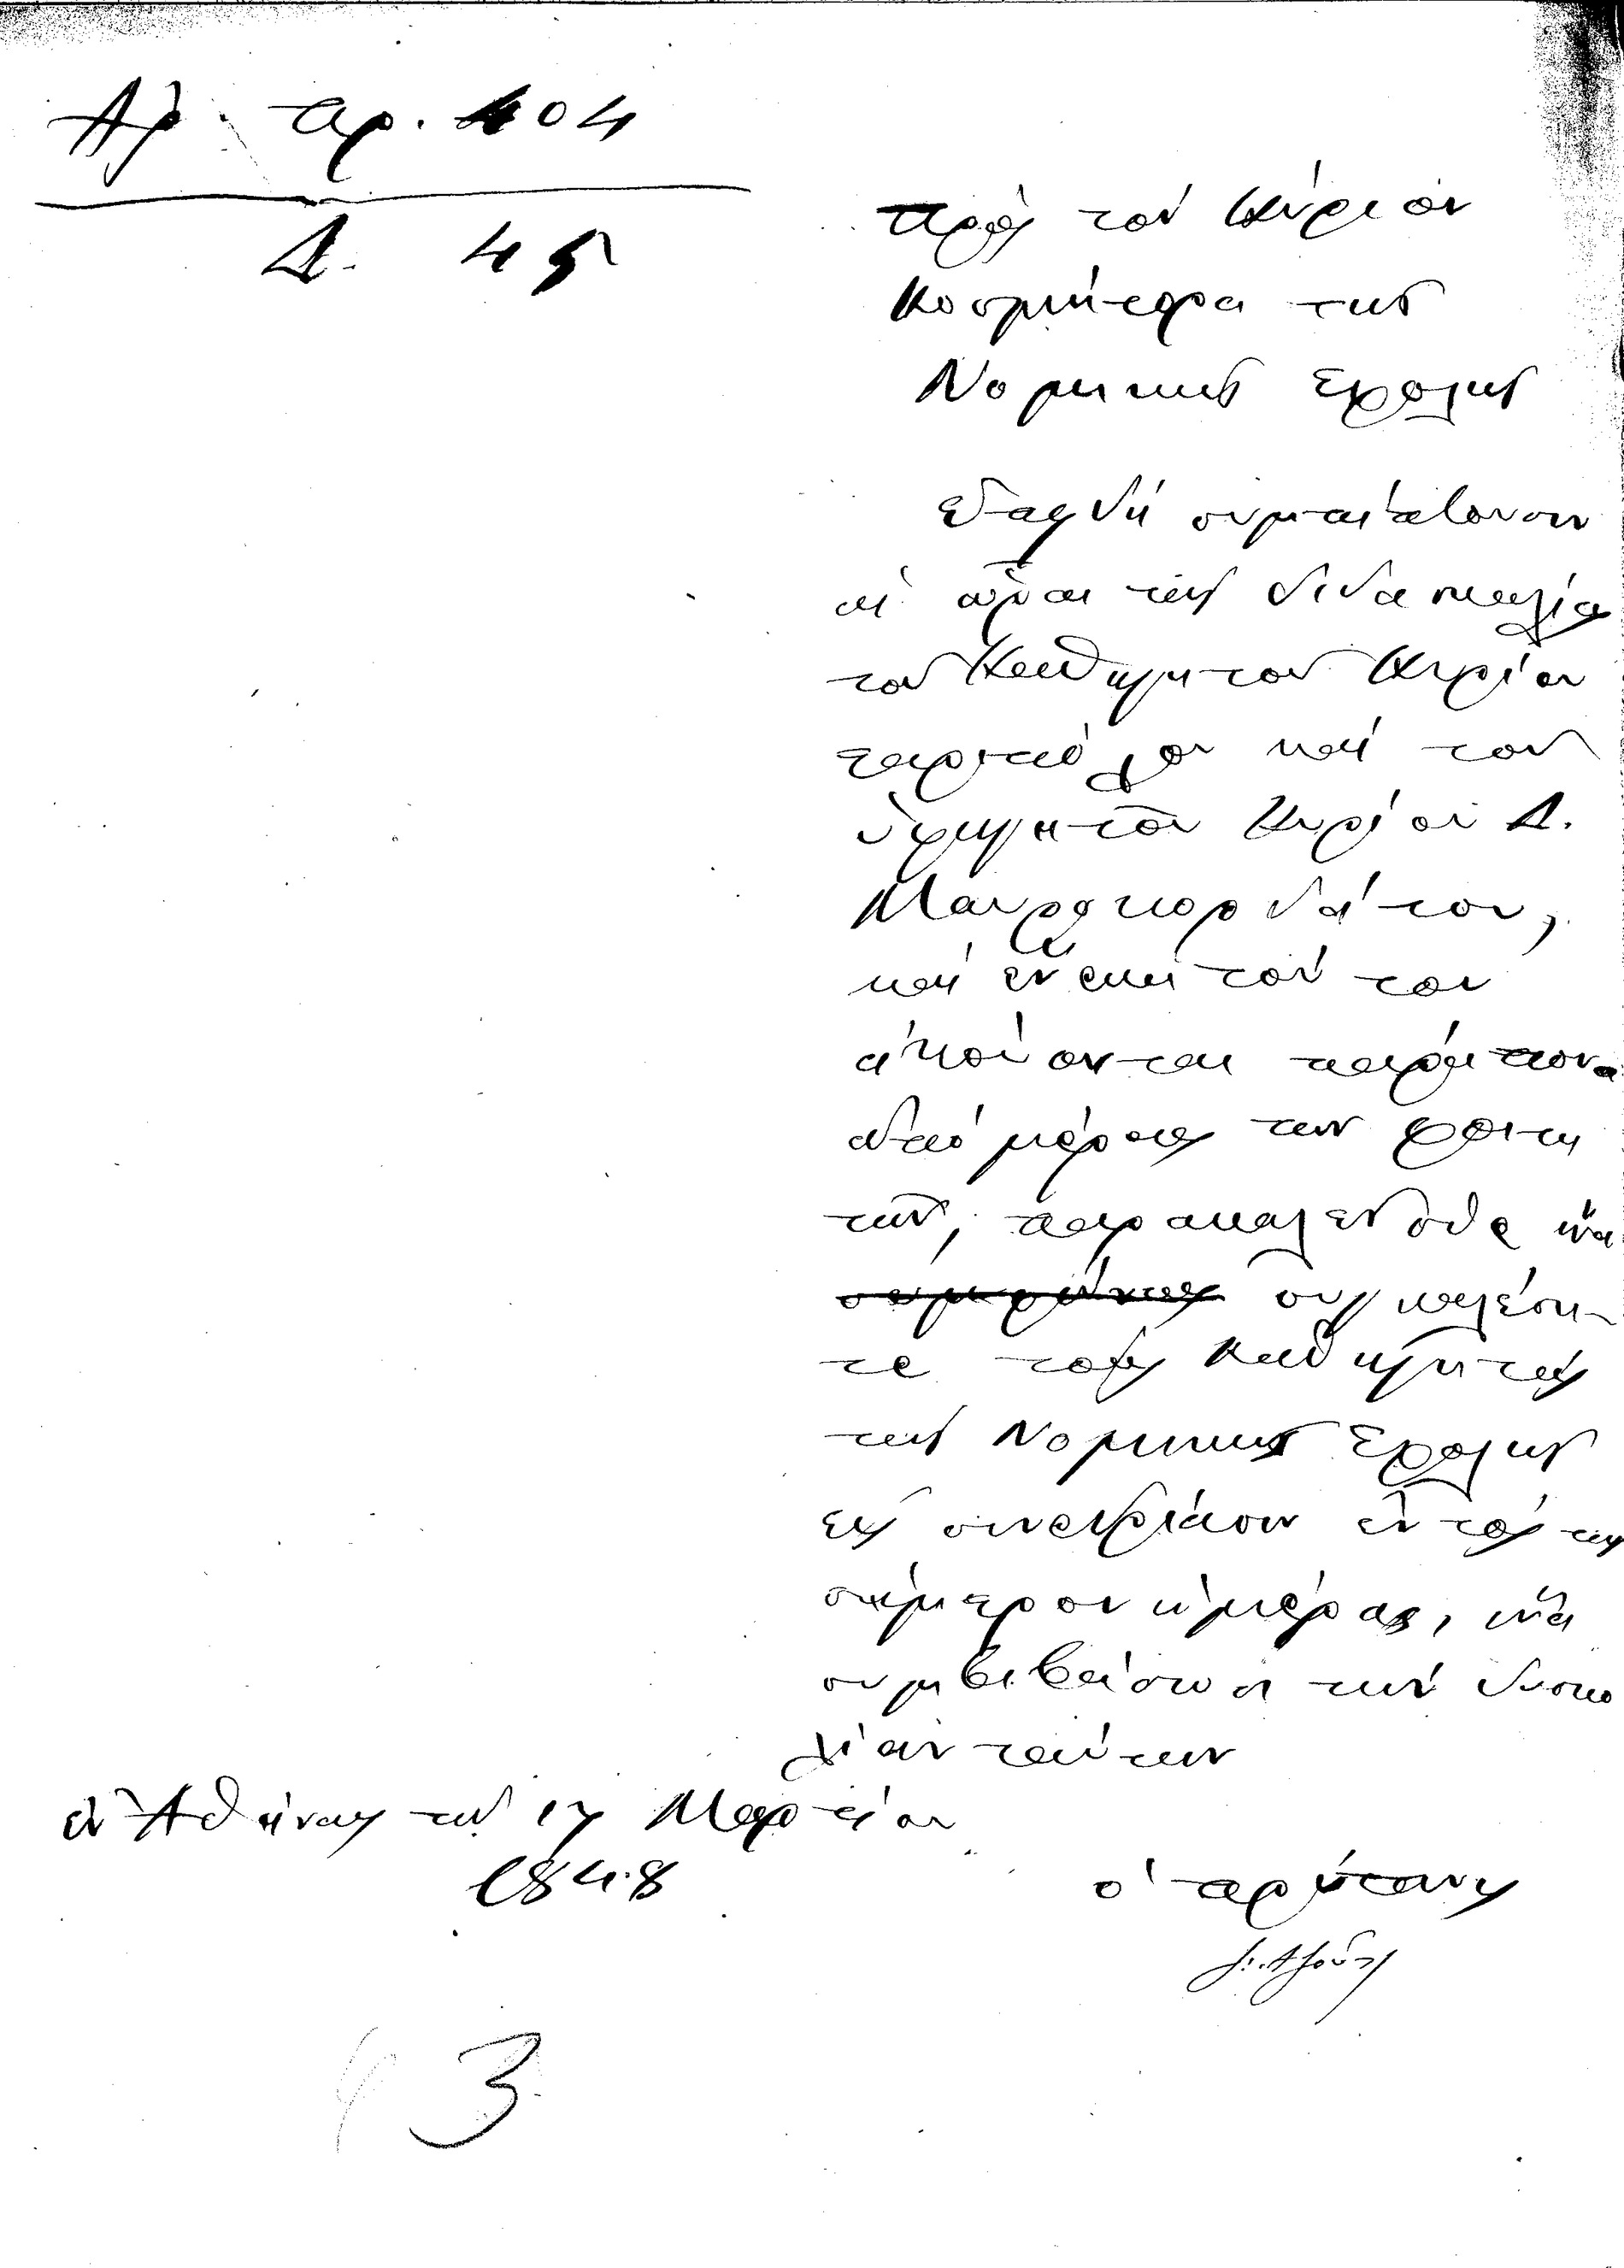 Αρ. πρ. 404
Δ. 45
Πρὸς τὸν Κύριον
Κοσμήτορα της
Νομικης Σχολης
Επειδή συμπίπτουσιν
αἱ ὧραι της διδασκαλίας
του Καθηγητου Κυρίου
και του
ὑφηγητοῦ Κυρίου Δ.
Μαυροκορδάτου,
και ἑνεκα τούτου
ἀκούονται παράπονα
ἀπό μέρους των φοιτη
τῶν, παρακαλεῖσθε ἵνα
συγκαλέση-
τε τοὺς Καθηγητάς
της Νομικης Σχολης
εις συνεδρίασιν ἐντός της
σήμερον ἡμέρας, ἵνα
συμβιβάσωσι τὴν δυσκο
λίαν ταύτην
ἐν Ἀθήναις τῇ 17 Μαρτίου
1848
ὁ πρύτανις
3